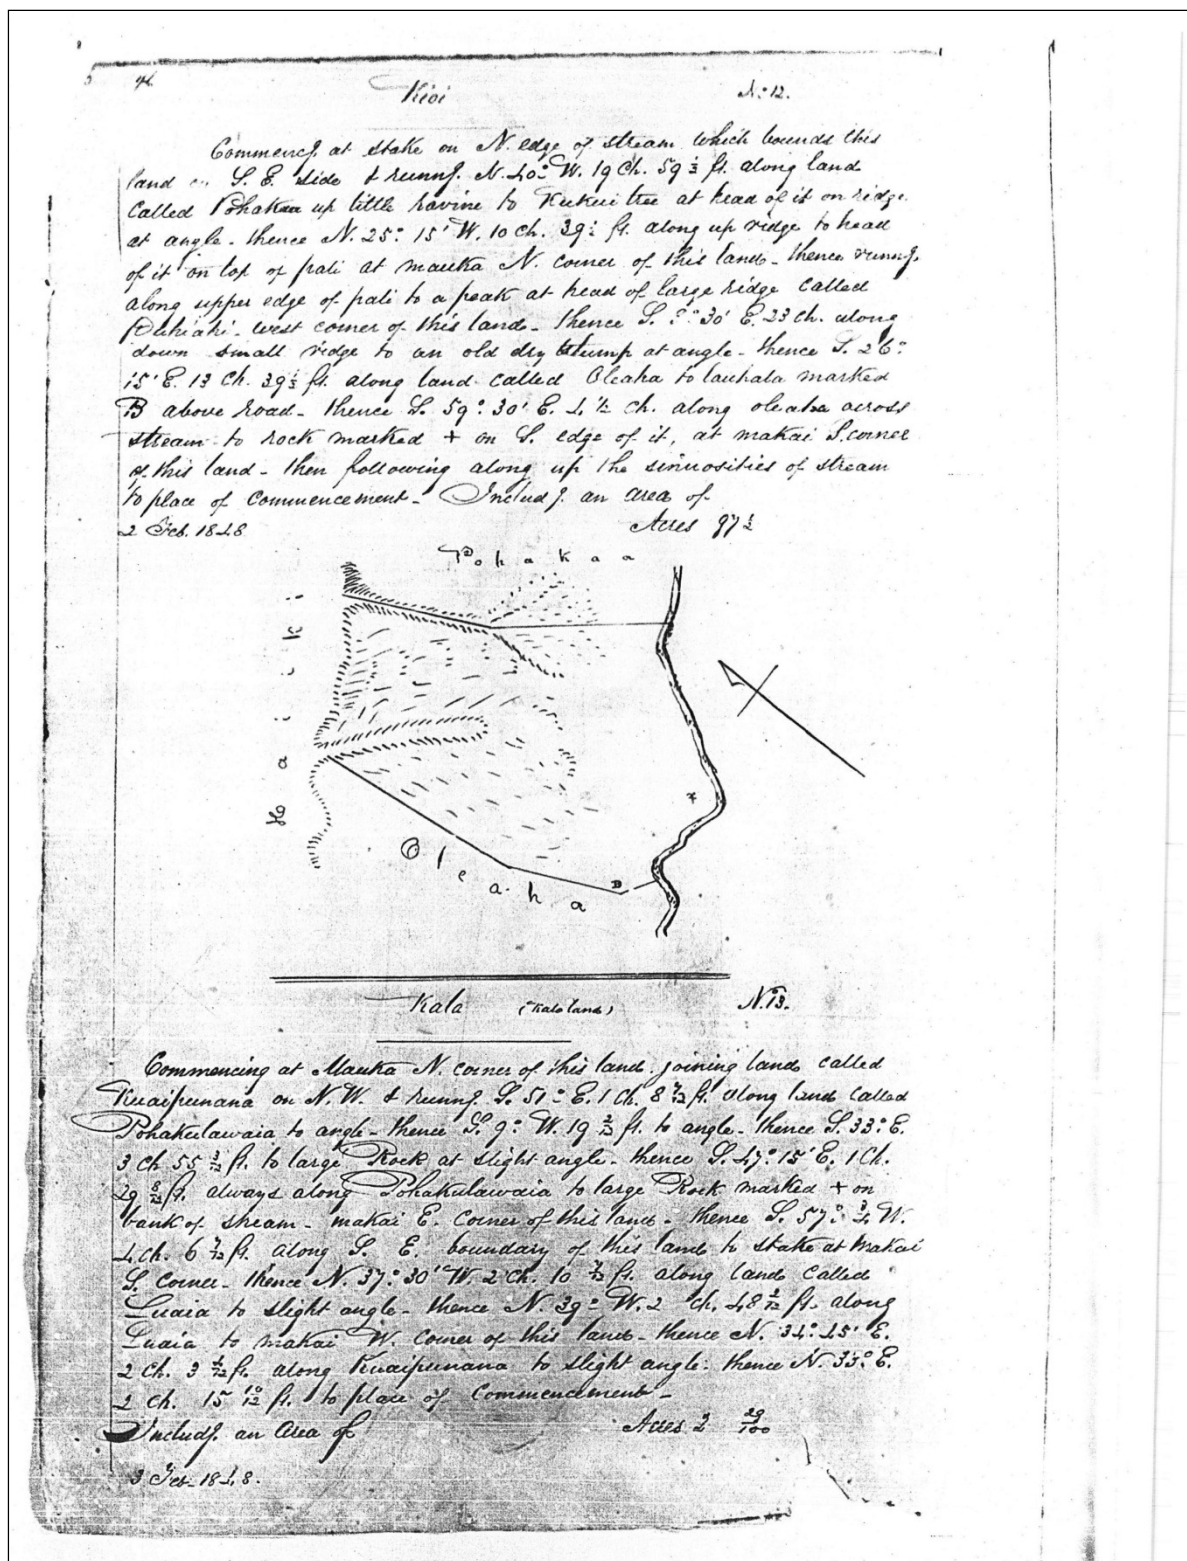 Kioi No. 12.
Commencg. at stake on N. edge of stream which bounds this
land on S. E. side & runng. N. 40° W. 19 Ch. 59 ½ ft. along land
called Pohakaa up little ravine to Kukui tree at head of it on ridge
at angle - thence N. 25° 15' W. 10 Ch. 39 ft. along up ridge to head
of it on top of pali at mauka N. corner of this land - thence runng.
along upper edge of pali to a peak at head of large ridge called
west corner of this land - thence S. 30' E. 23 Ch. along
down small ridge to an old dry stump at angle - thence S. 26°
15' E. 13 Ch. 39 ft. along land called Oleaha to lauhala marked
B above road - thence S. 59° 30' E. 4 ½ Ch. along oleaha across
stream to rock marked + on S. edge of it, at makai S. corner
of this land - then following along up the sinuosities of stream
to place of commencement - Includg. an area of
2 Feb. 1848 Acres 97 ½
Pohakaa
Haiki
Oleaha
B
Kala (Kalo land) No. 13.
Commencing at Mauka N. corner of this land joining land called
Kuaipunana on N. W. & runng. S. 51° E. 1 Ch. 8 7/12 ft. along land called
Pohakulawaia to angle - thence S. 9° W. 19 ft. to angle - thence S. 33° E.
3 Ch 55 ft. to large Rock at slight angle - thence S. 47° 15' E. 1 Ch.
29 8/12 ft. always along Pohakulawaia to large Rock marked + on
bank of stream - makai E. corner of this land - thence S. 57° ¾ W.
4 Ch. 6 7/12 ft. along S. E. boundary of this land to stake at Makai
S. corner - thence N. 37° 30' W. 2 Ch. 10 7/12 ft. along land called
Luaia to slight angle - thence N. 39° W. 2 Ch. 48 ft. along
Luaia to makai W. corner of this land - thence N. 34° 45' E.
2 Ch. 3 ft. along Kuaipunana to slight angle: thence N. 33° E.
2 Ch. 15 10/12 ft. to place of Commencement -
Includg. an area of Acres 2 29/100
3 Feb. 1848.